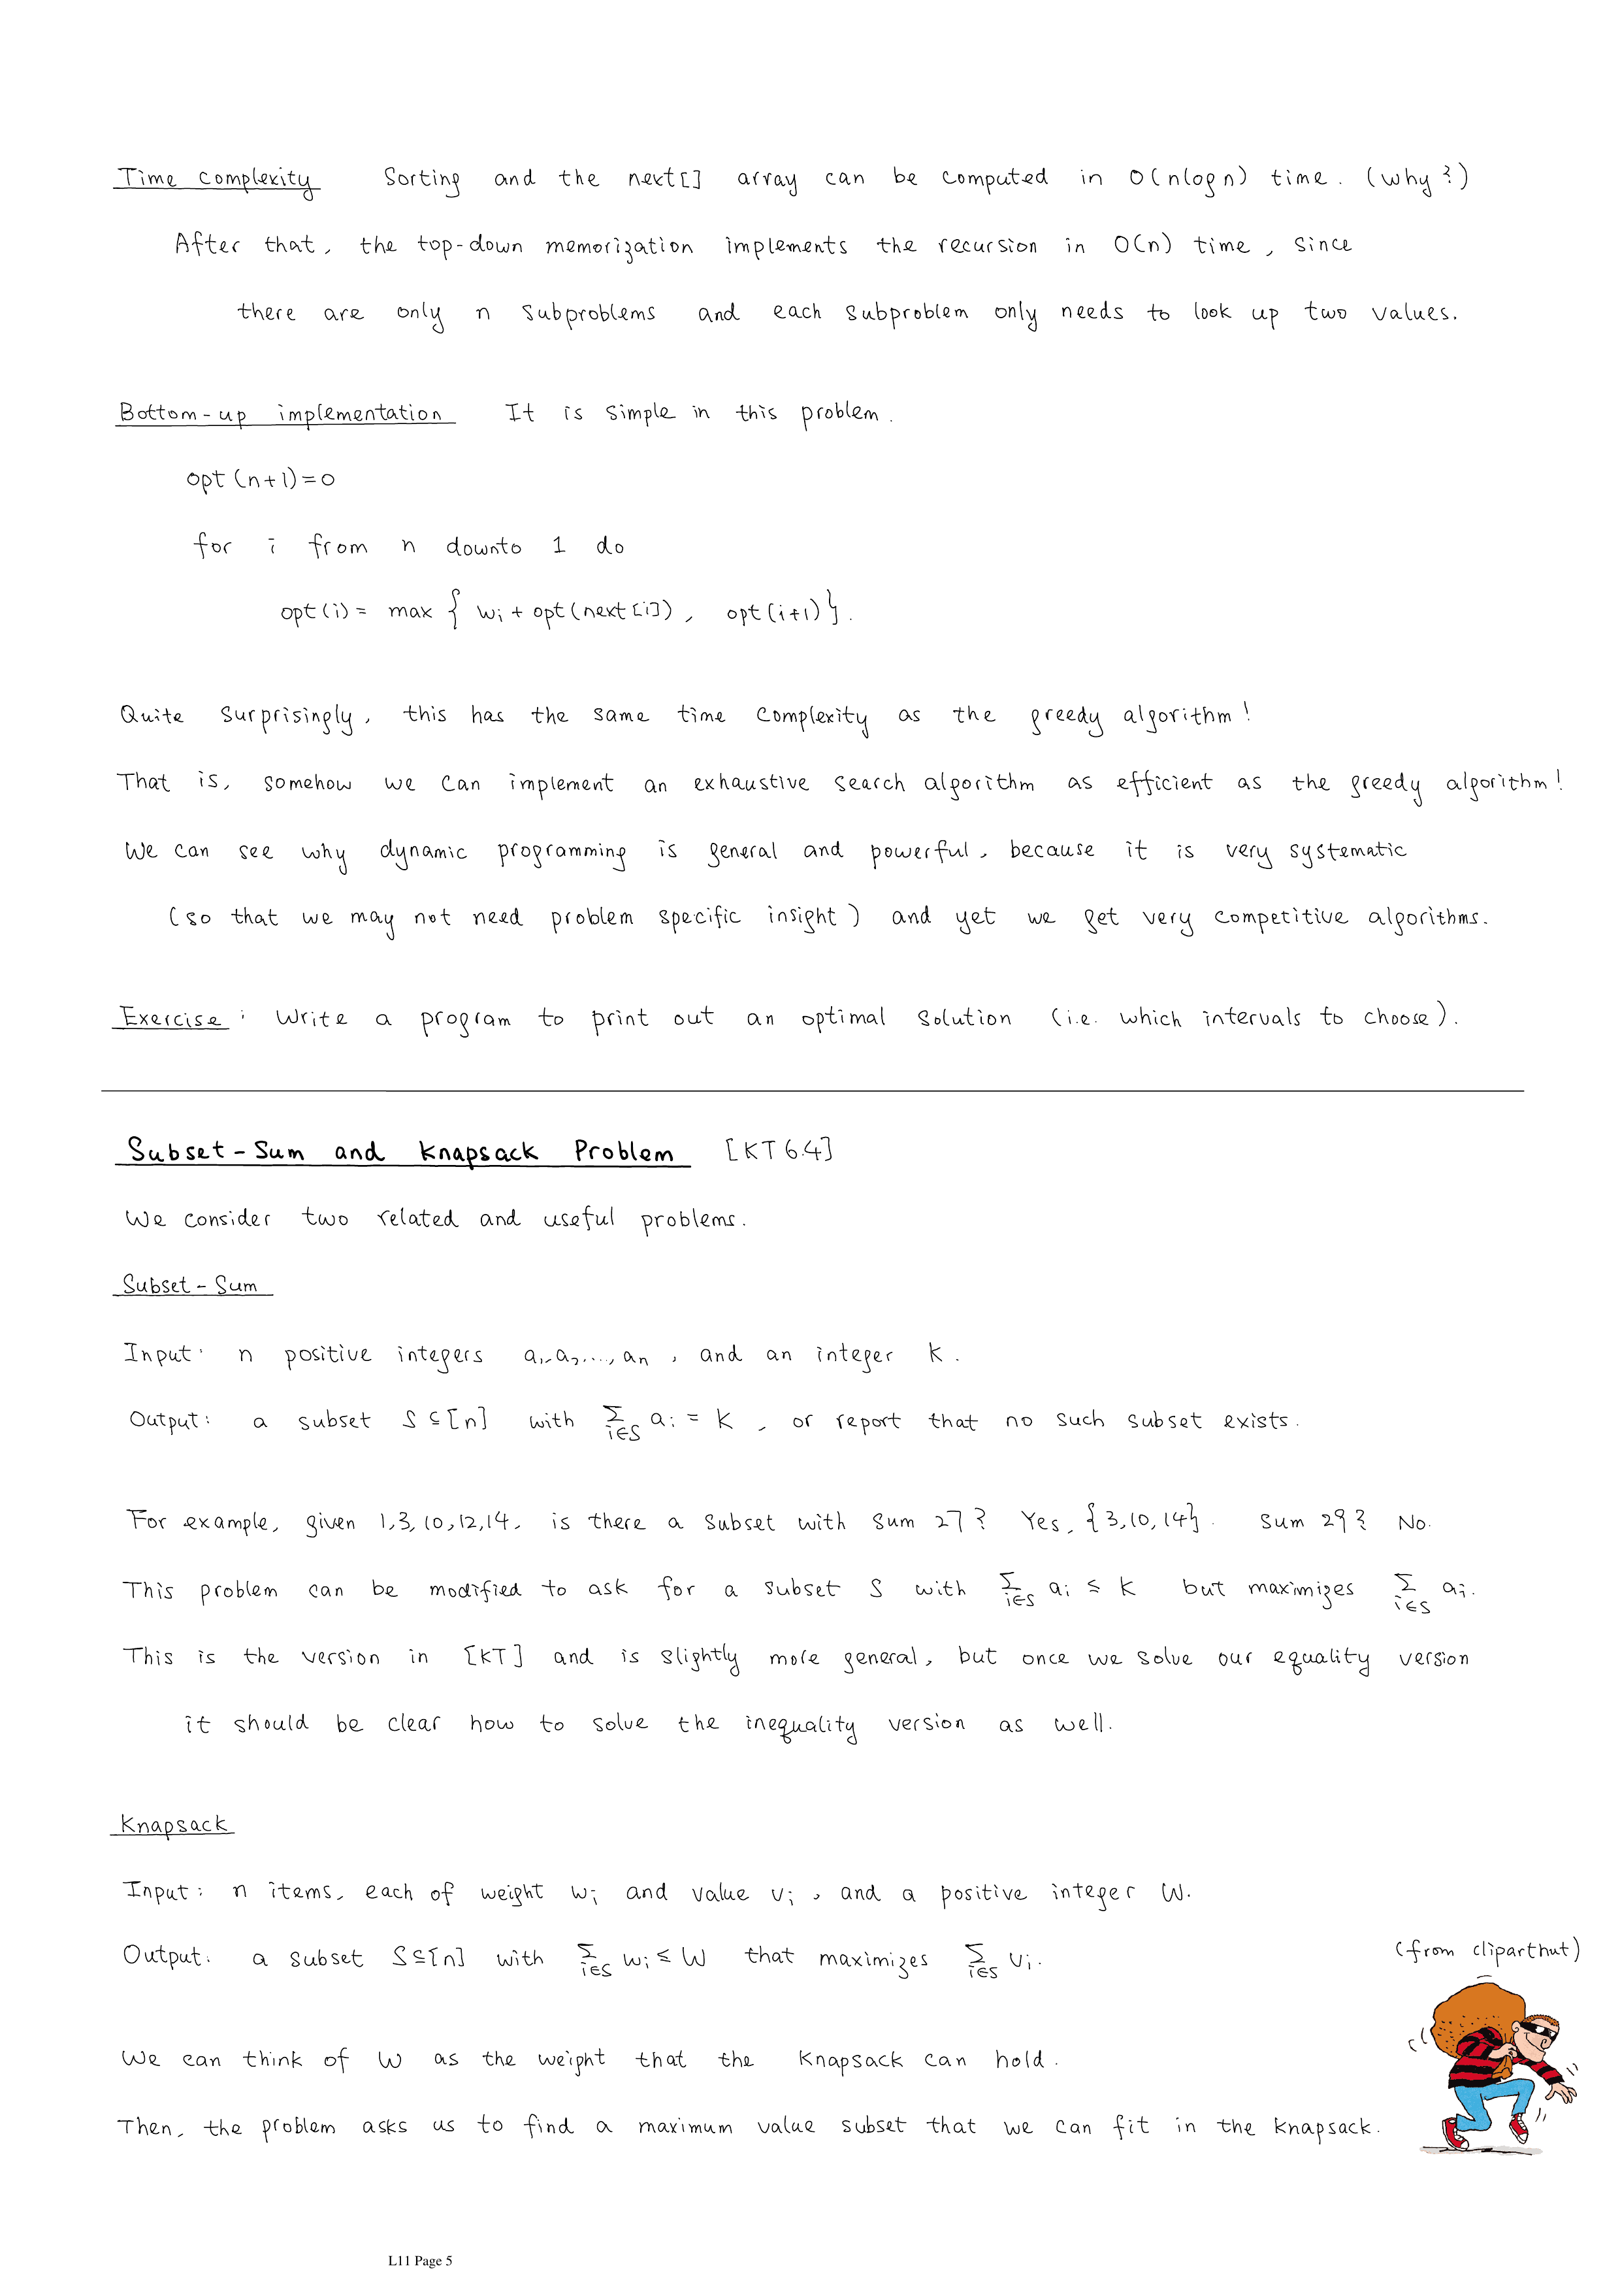 Time complexity Sorting and the next[] array can be computed in O(nlogn) time. (why?)
After that, the top-down memorization implements the recursion in O(n) time, since
there are only n subproblems and each subproblem only needs to look up two values.
Bottom-up implementation It is simple in this problem.
opt(n+1)=0
for i from n downto 1 do
opt(i) = max { wᵢ + opt(next[i]), opt(i+1) }.
Quite surprisingly, this has the same time complexity as the greedy algorithm!
That is, somehow we can implement an exhaustive search algorithm as efficient as the greedy algorithm!
We can see why dynamic programming is general and powerful, because it is very systematic
(so that we may not need problem specific insight) and yet we get very competitive algorithms.
Exercise: Write a program to print out an optimal solution (i.e. which intervals to choose).
Subset-Sum and Knapsack Problem [KT 6.4]
We consider two related and useful problems.
Subset-Sum
Input: n positive integers a₁,a₂,...,aₙ, and an integer K.
Output: a subset S⊆[n] with Σ_{i∈S} aᵢ = K, or report that no such subset exists.
For example, given 1,3,10,12,14, is there a subset with sum 27? Yes, {3,10,14}. Sum 29? No.
This problem can be modified to ask for a subset S with Σ_{i∈S} aᵢ ≤ K but maximizes Σ_{i∈S} aᵢ.
This is the version in [KT] and is slightly more general, but once we solve our equality version
it should be clear how to solve the inequality version as well.
Knapsack
Input: n items, each of weight wᵢ and value vᵢ, and a positive integer W.
Output: a subset S⊆[n] with Σ_{i∈S} wᵢ ≤ W that maximizes Σ_{i∈S} vᵢ.
(from cliparthut)
We can think of W as the weight that the knapsack can hold.
Then, the problem asks us to find a maximum value subset that we can fit in the knapsack.
L11 Page 5